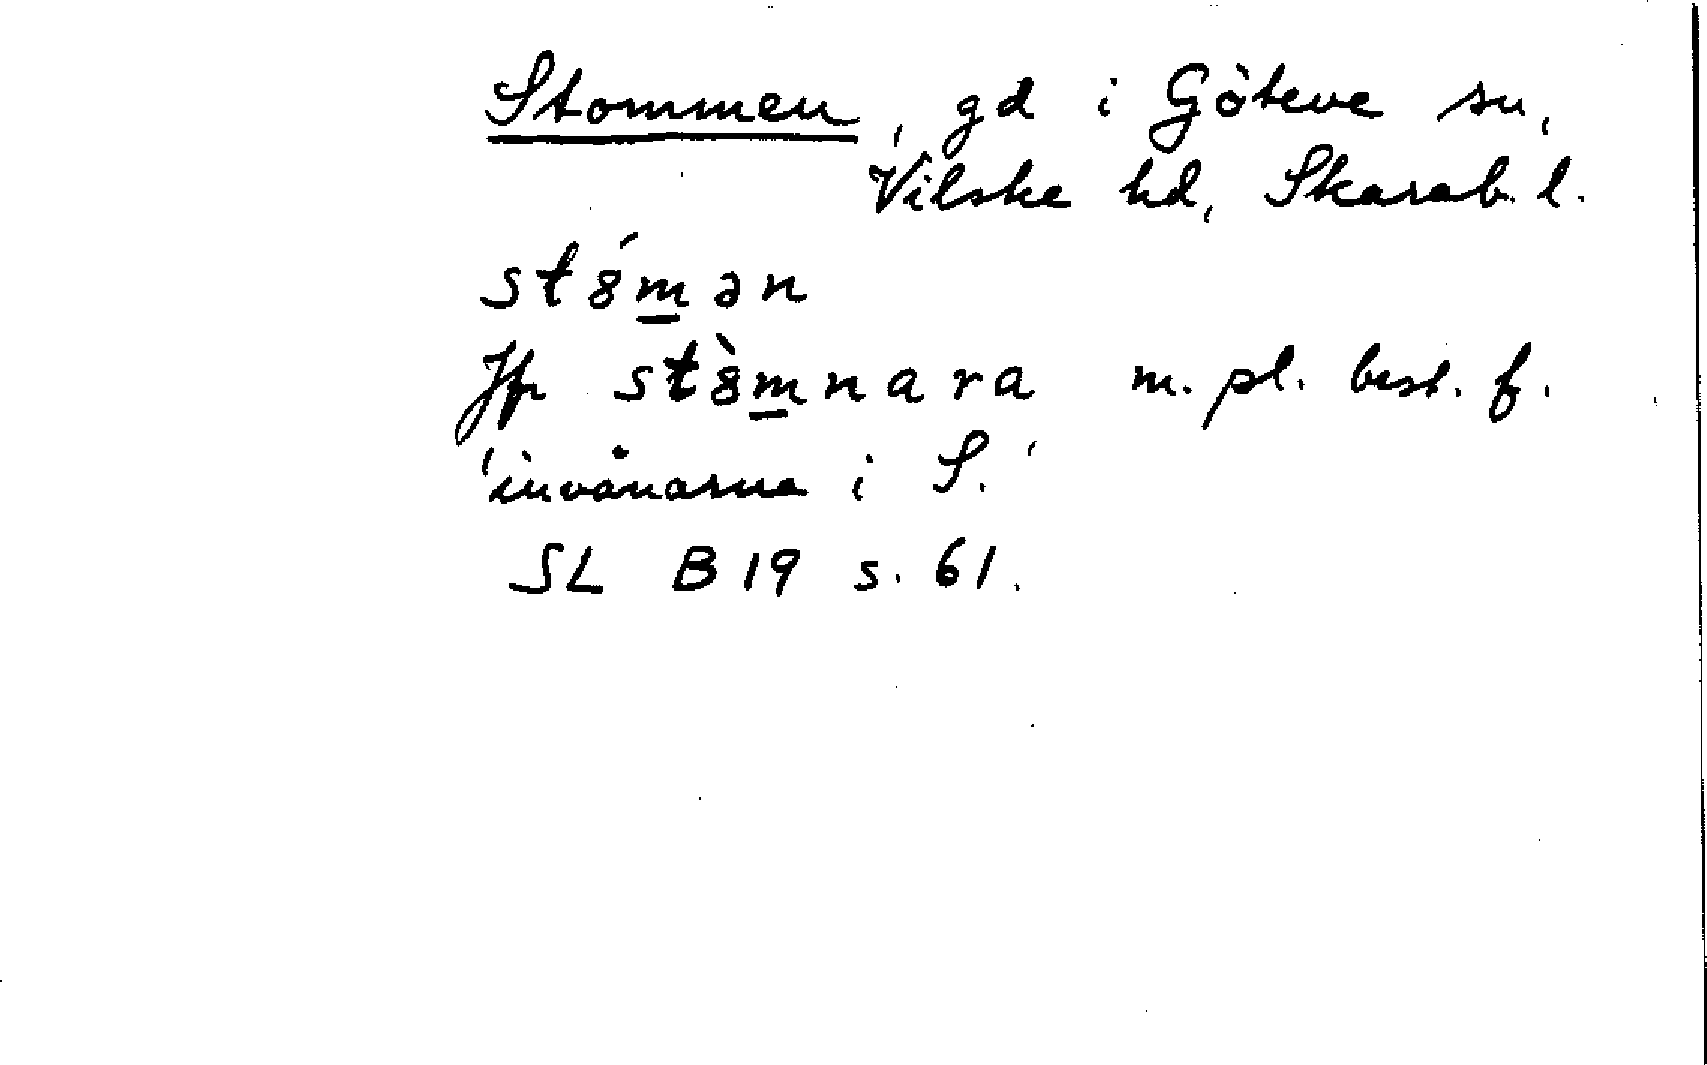 Stommen, gd i Göteve sn,
Vilske hd, Skarab. l.
st8́mən
Jfr st8̀mnara m. pl. best. f.
'invånarna i S.'
SL B19 s. 61.